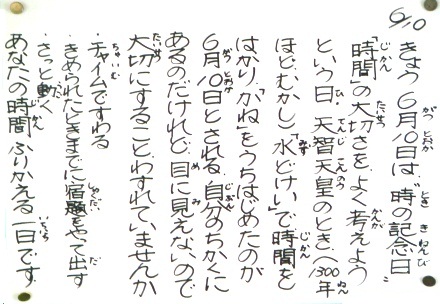 6/10
きょう 6月10日は、"時の記念日
「時間」の大切さを、よく考えよう
という日. 天智天皇のとき(1300年
ほどむかし)「水どけい」で時間を
はかり「かね」をうちはじめたのが
6月10日とされる. 自分のちかくに
あるのだけれど、目に見えないので
大切にすることわすれていませんか
・チャイムですわる
・きめられたときまでに宿題をやって出す
・さっと動く
あなたの時間 ふりかえる一日です